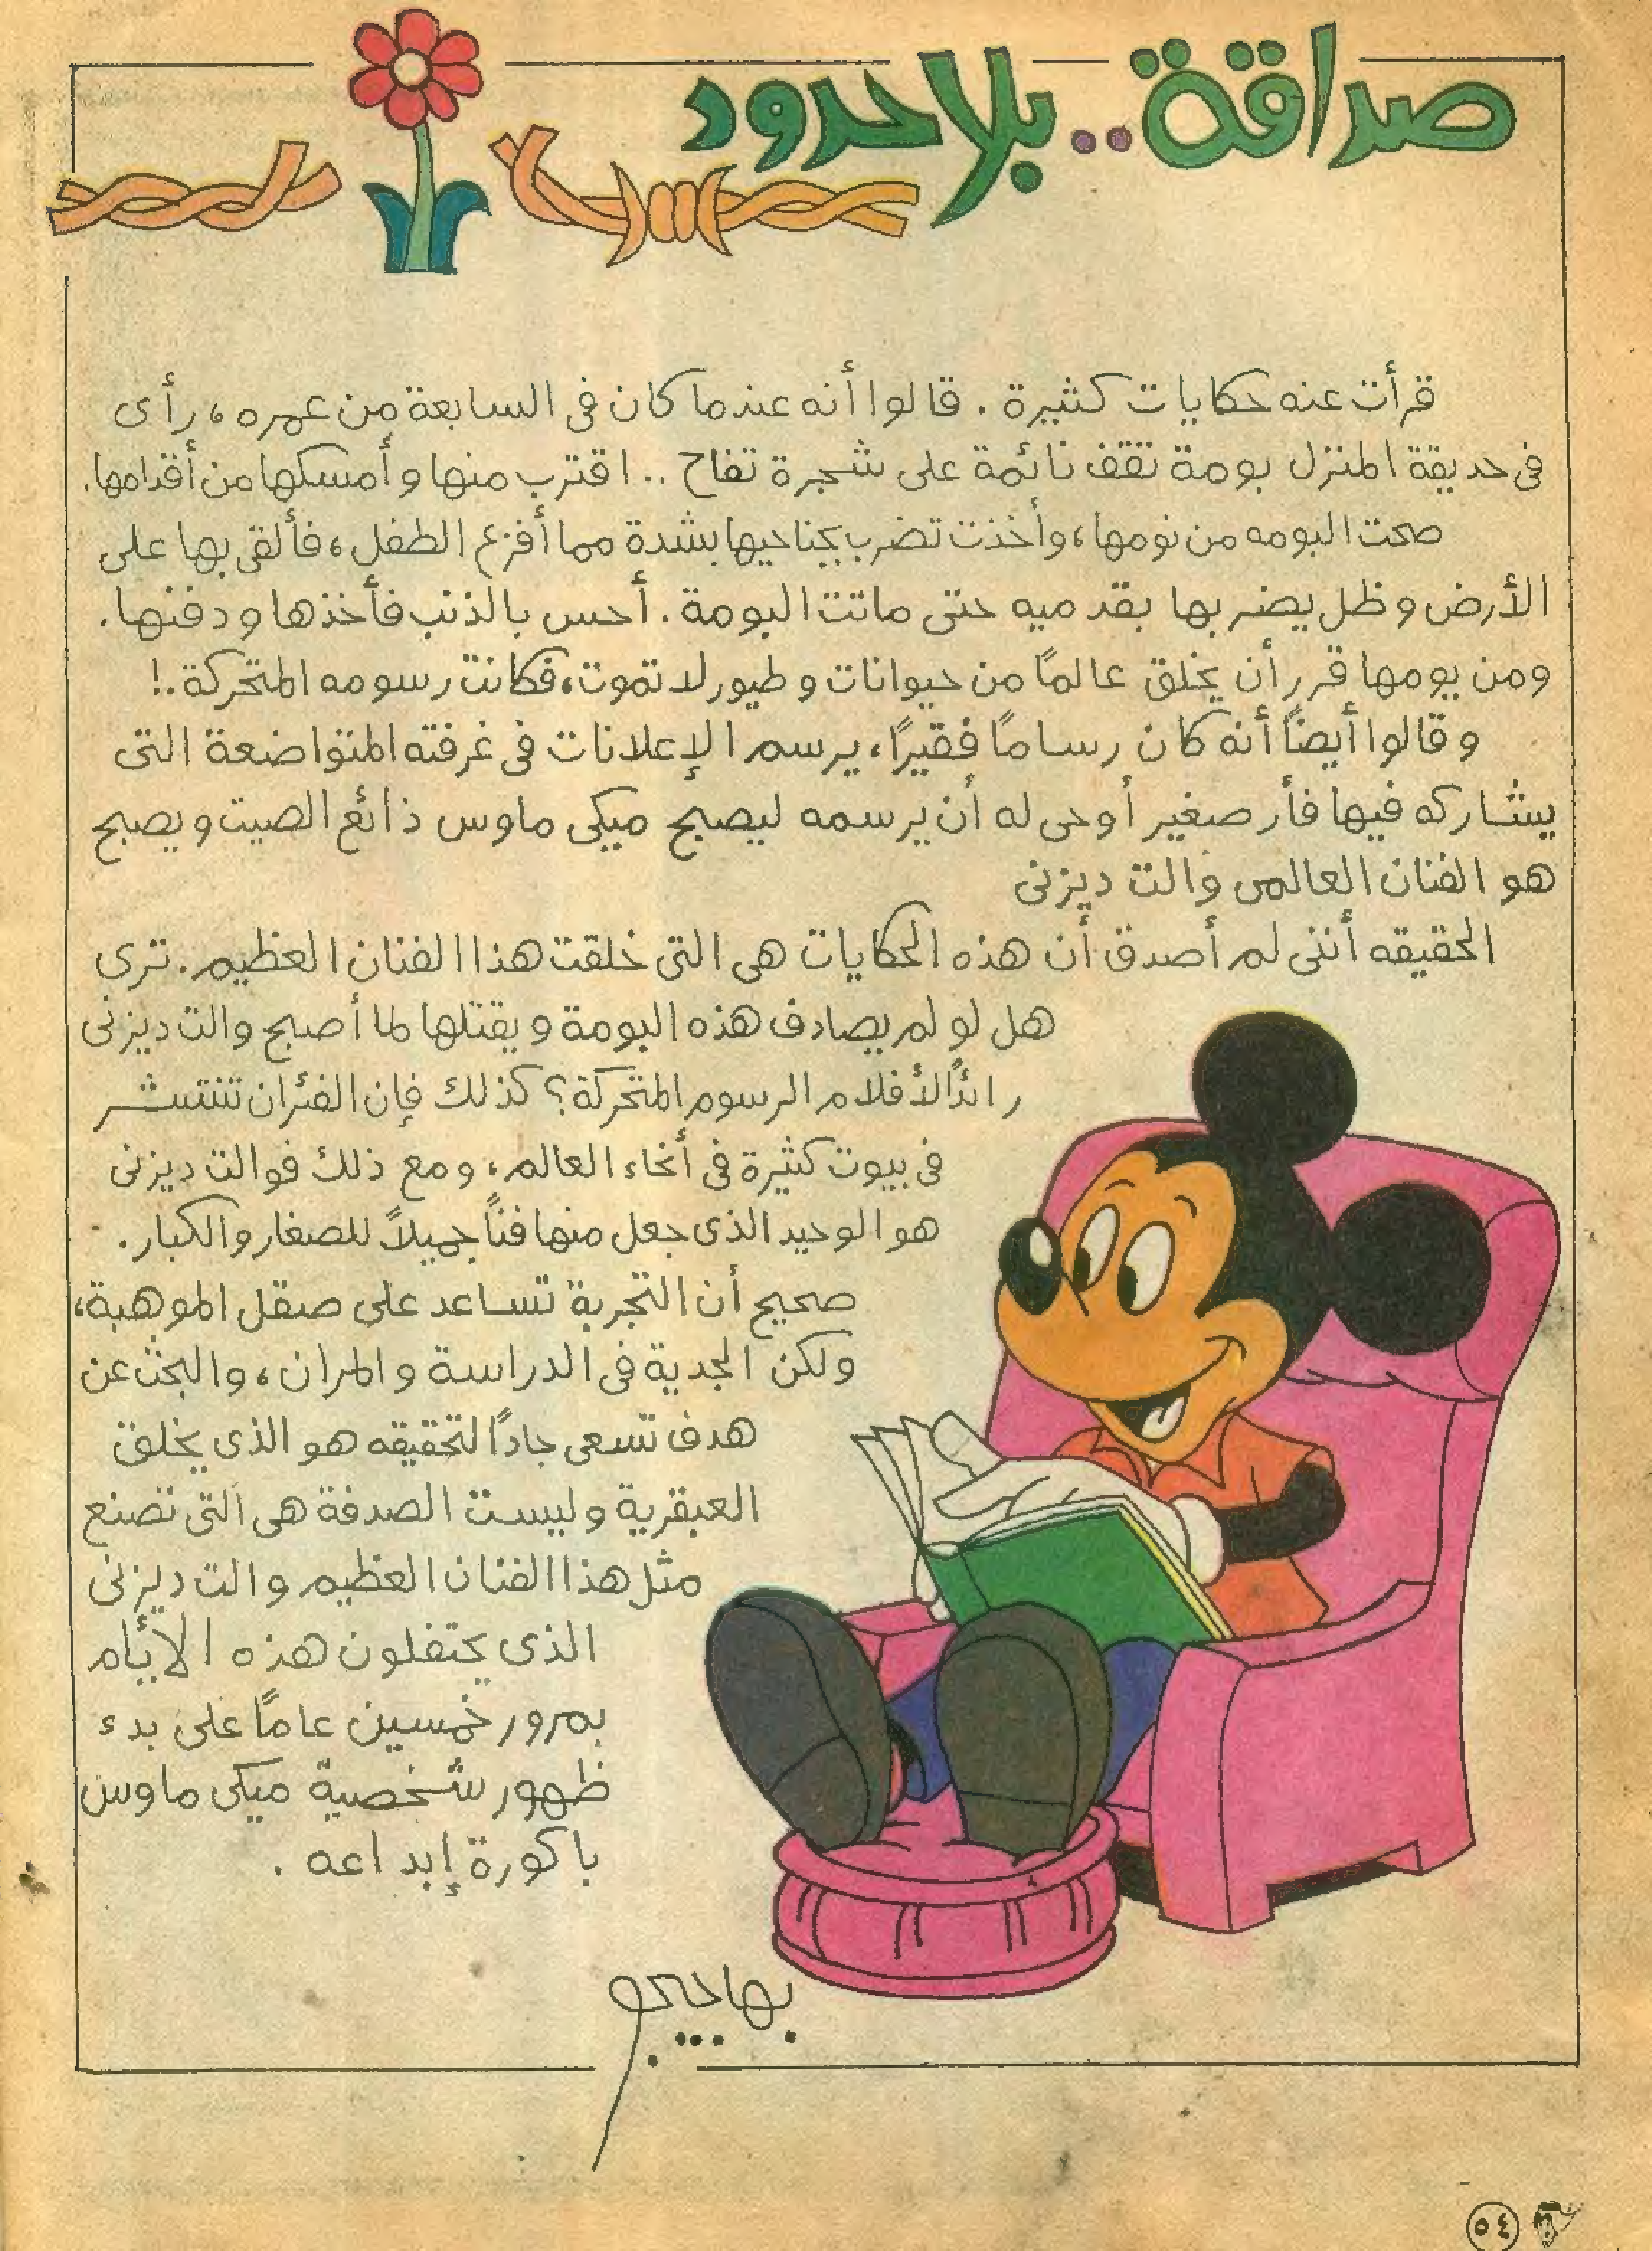 صداقة..بلا حدود
قرأت عنه حكايات كثيرة . قالوا أنه عندما كان فى السابعة من عمره، رأى
فى حديقة المنزل بومة تقف نائمة على شجرة تفاح .. اقترب منها وأمسكها من أقدامها.
صحت البومه من نومها، وأخذت تضرب بجناحيها بشدة مما أفزع الطفل، فألقى بها على
الأرض وظل يضربها بقدميه حتى ماتت البومة. أحس بالذنب فأخذها ودفنها.
ومن يومها قرر أن يخلق عالمًا من حيوانات وطيور لا تموت، فكانت رسومه المتحركة.!
وقالوا أيضًا أنه كان رسامًا فقيرًا، يرسم الإعلانات فى غرفته المتواضعة التى
يشاركه فيها فأر صغير أوحى له أن يرسمه ليصبح ميكى ماوس ذائع الصيت ويصبح
هو الفنان العالمى والت ديزنى
الحقيقه أننى لم أصدق أن هذه الحكايات هى التى خلقت هذا الفنان العظيم. ترى
هل لو لم يصادف هذه البومة ويقتلها لما أصبح والت ديزنى
رائدًا لأفلام الرسوم المتحركة؟ كذلك فإن الفئران تنتشر
فى بيوت كثيرة فى أنحاء العالم، ومع ذلك فوالت ديزنى
هو الوحيد الذى جعل منها فنًا جميلاً للصغار والكبار.
صحيح أن التجربة تساعد على صقل الموهبة،
ولكن الجدية فى الدراسة والمران، والبحث عن
هدف تسعى جادًا لتحقيقه هو الذى يخلق
العبقرية وليست الصدفة هى التى تصنع
مثل هذا الفنان العظيم والت ديزنى
الذى يحتفلون هذه الأيام
بمرور خمسين عامًا على بدء
ظهور شخصية ميكى ماوس
باكورة إبداعه .
٥٤